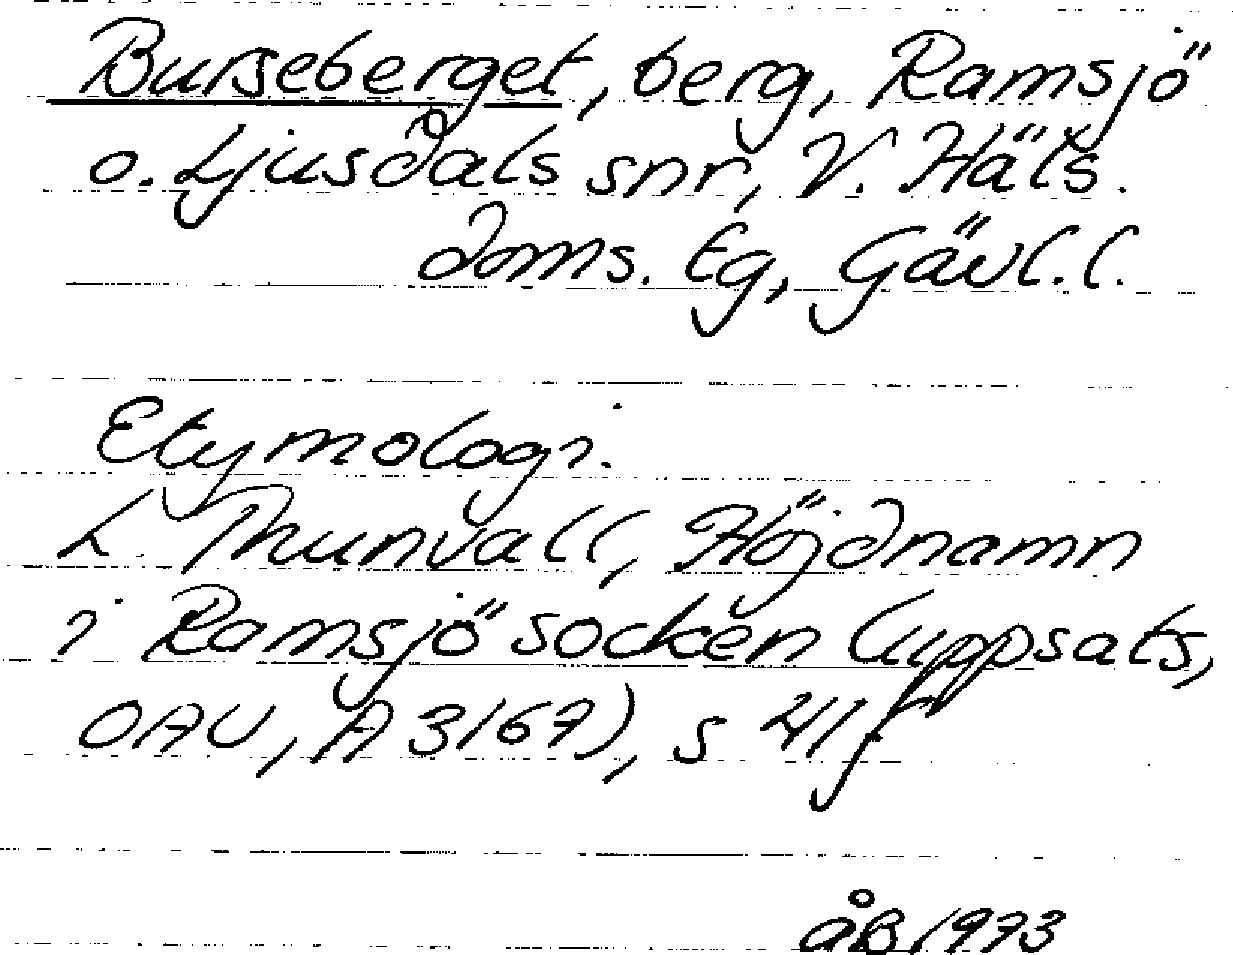 Burseberget, berg, Ramsjö
o. Ljusdals snr, V. Häls.
doms. Eg, Gävl.l.
Etymologi.
L. Thunvall, Höjdnamn
i Ramsjö socken (uppsats,
OAU, A 3167), s 41 f
åB 1973